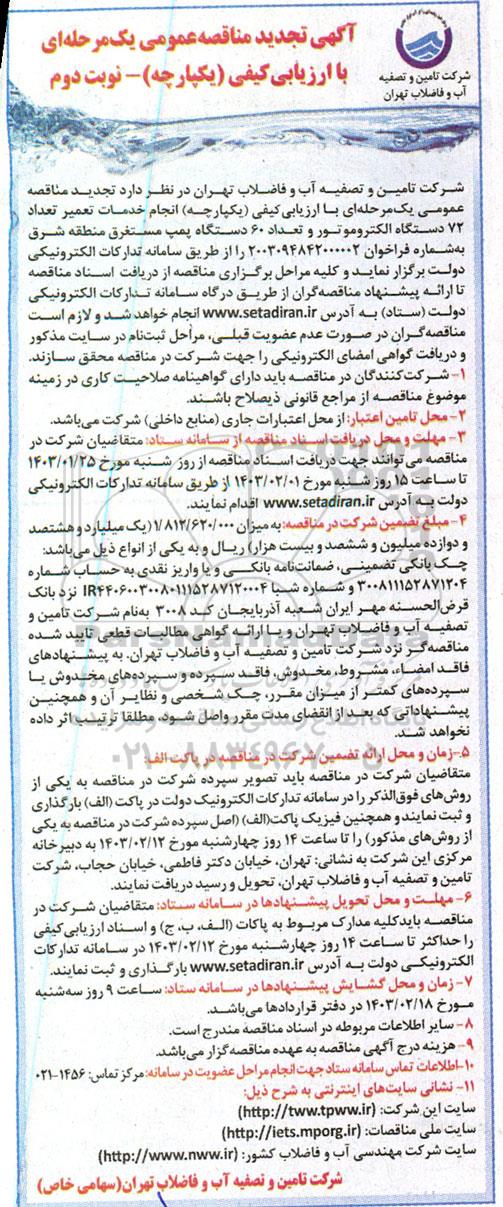 آگهی تجدید مناقصه عمومی یک‌مرحله‌ای
با ارزیابی کیفی (یکپارچه) – نوبت دوم
شرکت تامین و تصفیه
آب و فاضلاب تهران
شرکت تامین و تصفیه آب و فاضلاب تهران در نظر دارد تجدید مناقصه
عمومی یک‌مرحله‌ای با ارزیابی کیفی (یکپارچه) انجام خدمات تعمیر تعداد
۷۲ دستگاه الکتروموتور و تعداد ۶۰ دستگاه پمپ مستغرق منطقه شرق
به‌شماره فراخوان ۲۰۰۳۰۹۴۸۴۲۰۰۰۰۰۲ را از طریق سامانه تدارکات الکترونیکی
دولت برگزار نماید و کلیه مراحل برگزاری مناقصه از دریافت اسناد مناقصه
تا ارائه پیشنهاد مناقصه‌گران از طریق درگاه سامانه تدارکات الکترونیکی
دولت (ستاد) به آدرس www.setadiran.ir انجام خواهد شد و لازم است
مناقصه‌گران در صورت عدم عضویت قبلی، مراحل ثبت‌نام در سایت مذکور
و دریافت گواهی امضای الکترونیکی را جهت شرکت در مناقصه محقق سازند.
۱- شرکت‌کنندگان در مناقصه باید دارای گواهینامه صلاحیت کاری در زمینه
موضوع مناقصه از مراجع قانونی ذیصلاح باشند.
۲- محل تامین اعتبار: از محل اعتبارات جاری (منابع داخلی) شرکت می‌باشد.
۳- مهلت و محل دریافت اسناد مناقصه از سامانه ستاد: متقاضیان شرکت در
مناقصه می توانند جهت دریافت اسناد مناقصه از روز شنبه مورخ ۱۴۰۳/۰۱/۲۵
تا ساعت ۱۵ روز شنبه مورخ ۱۴۰۳/۰۲/۰۱ از طریق سامانه تدارکات الکترونیکی
دولت به آدرس www.setadiran.ir اقدام نمایند.
۴- مبلغ تضمین شرکت در مناقصه: به میزان ۱/۸۱۲/۶۲۰/۰۰۰ (یک میلیارد و هشتصد
و دوازده میلیون و ششصد و بیست هزار) ریال و به یکی از انواع ذیل می‌باشد:
چک بانکی تضمینی، ضمانت‌نامه بانکی و یا واریز نقدی به حساب شماره
۳۰۰۸۱۱۱۵۲۸۷۱۲۰۴ و شماره شبا IR۴۴۰۶۰۰۳۰۰۸۰۱۱۱۵۲۸۷۱۲۰۰۴ نزد بانک
قرض‌الحسنه مهر ایران شعبه آذربایجان کد ۳۰۰۸ به‌نام شرکت تامین و
تصفیه آب و فاضلاب تهران و یا ارائه گواهی مطالبات قطعی تایید شده
مناقصه‌گر نزد شرکت تامین و تصفیه آب و فاضلاب تهران. به پیشنهادهای
فاقد امضاء، مشروط، مخدوش، فاقد سپرده و سپرده‌های مخدوش یا
سپرده‌های کمتر از میزان مقرر، چک شخصی و نظایر آن و همچنین
پیشنهاداتی که بعد از انقضای مدت مقرر واصل شود، مطلقا ترتیب اثر داده
نخواهد شد.
۵-زمان و محل ارائه تضمین شرکت در مناقصه در پاکت الف:
متقاضیان شرکت در مناقصه باید تصویر سپرده شرکت در مناقصه به یکی از
روش‌های فوق‌الذکر را در سامانه تدارکات الکترونیک دولت در پاکت (الف) بارگذاری
و ثبت نمایند و همچنین فیزیک پاکت (الف) (اصل سپرده شرکت در مناقصه به یکی
از روش‌های مذکور) را تا ساعت ۱۴ روز چهارشنبه مورخ ۱۴۰۳/۰۲/۱۲ به دبیرخانه
مرکزی این شرکت به نشانی: تهران، خیابان دکتر فاطمی، خیابان حجاب، شرکت
تامین و تصفیه آب و فاضلاب تهران، تحویل و رسید دریافت نمایند.
۶- مهلت و محل تحویل پیشنهادها در سامانه ستاد: متقاضیان شرکت در
مناقصه باید کلیه مدارک مربوط به پاکات (الف، ب، ج) و اسناد ارزیابی کیفی
را حداکثر تا ساعت ۱۴ روز چهارشنبه مورخ ۱۴۰۳/۰۲/۱۲ در سامانه تدارکات
الکترونیکی دولت به آدرس www.setadiran.ir بارگذاری و ثبت نمایند.
۷- زمان و محل گشایش پیشنهادها در سامانه ستاد: ساعت ۹ روز سه‌شنبه
مورخ ۱۴۰۳/۰۲/۱۸ در دفتر قراردادها می‌باشد.
۸- سایر اطلاعات مربوطه در اسناد مناقصه مندرج است.
۹- هزینه درج آگهی مناقصه به عهده مناقصه‌گزار می‌باشد.
۱۰-اطلاعات تماس سامانه ستاد جهت انجام مراحل عضویت در سامانه: مرکز تماس: ۱۴۵۶-۰۲۱
۱۱- نشانی سایت‌های اینترنتی به شرح ذیل:
سایت این شرکت: (http://tww.tpww.ir)
سایت ملی مناقصات: (http://iets.mporg.ir)
سایت شرکت مهندسی آب و فاضلاب کشور: (http://www.nww.ir)
شرکت تامین و تصفیه آب و فاضلاب تهران (سهامی خاص)